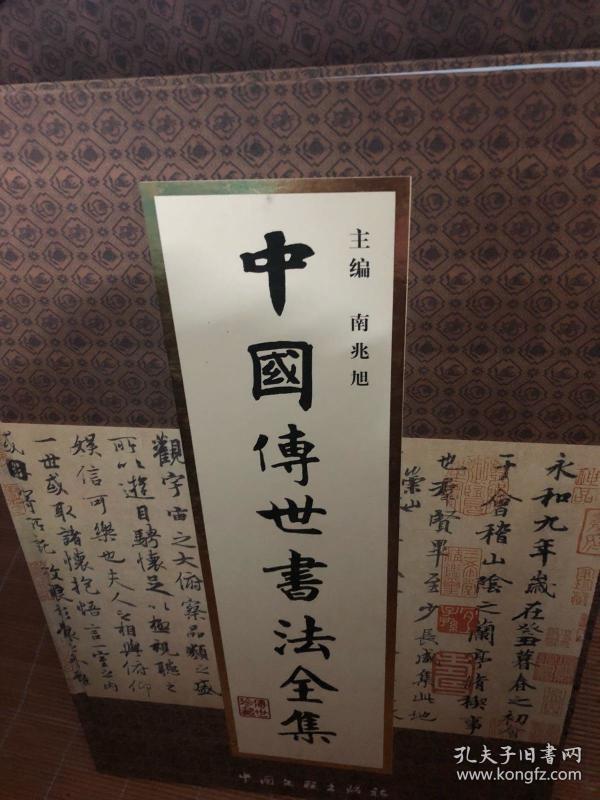 中國傳世書法全集
主编 南兆旭
永和九年歲在癸丑暮春之初會
于會稽山陰之蘭亭脩稧事
也羣賢畢至少長咸集此地
崇山
觀宇宙之大俯察品類之盛
所以遊目騁懷足以極視聽之
娛信可樂也夫人之相與俯仰
一世或取諸懷抱悟言一室之內
或因寄所託放浪形骸之外雖
傳世
中国文联出版社
孔夫子旧书网
www.kongfz.com